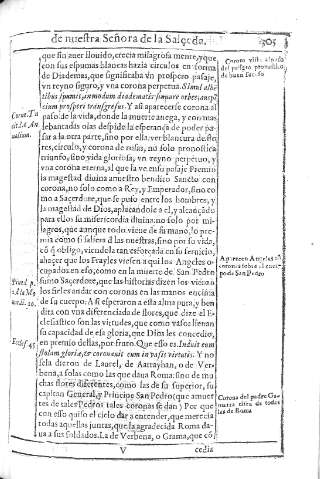 de nuestra Señora de la Salceda.
505
que sin auer llouido, crecia milagrosa mente, y que
con sus espumas blancas hazia circulos en forma
de Diademas, que significaba vn prospero pasaje,
vn reyno siguro, y vna corona perpetua. Simul albe
tibus spumis, in modum diadematis sinuare orbes, auspi
cium prosperi transgresus. Y asi aparecerse corona al
paso de la vida, donde la muerte anega, y con mas
lebantadas olas despide la esperança de poder pa-
sar a la otra parte, sino por ella, ver blancura de flo
res, circulo, y corona de rosas, no solo pronostica
triunfo, sino vida gloriosa, vn reyno perpetuo, y
vna corona eterna, al que la ve en su pasaje Premio
la magestad diuina a nuestro bendito Sancto con
corona, no solo como a Rey, y Emperador, sino co
mo a Sacerdote, que se puso entre los hombres, y
la magestad de Dios, aplacandole a el, y alcançado
para ellos su misericordia diuina: no solo por mi-
lagros, que aunque todo viene de su mano, lo pre-
mia como si saliera d las nuestras, sino por su vida,
cõ q̃ obligo, viendela tan esforçada en su seruicio,
a haçer que los Frayles viesen a quien los Angeles o-
cupados en eso; como en la muerte de San Pedro
sumo Sacerdote, que las historias dizen los vieron
los fieles andar con coronas en las manos encima
de su cuerpo: Asi esperaron a esta alma pura, y ben
dita con vna diferenciada de flores, que dize el Ec-
clesiastico son las virtudes, que como vaso llenan
su capacidad de esta gloria, que Dios les concedio,
en premio dellas, por fruto. Que eso es. Induit eum
stolam gloriæ, & coronauit eum in vasis virtutis. Y no
sela dieron de Laurel, de Aarrayhan, o de Ver-
bena, a solas como las que daua Roma: sino de mu
chas flores diferentes, como las de su superior, su
capitan General, y Principe San Pedro (que a muer
tes de tales Pedros tales coronas se dan) Por que
con esso quiso el cielo dar a entender, que merecia
todas aquellas juntas, que la agradecida Roma da-
ua a sus soldados. La de Verbena, o Grama, que cõ
V
cedia
Corona
del
de buen
Corne. Ta
cit. Li. An
nalium.
Aparecen Angeles cõ
coronas sobre el cuer
po de San Pedro
Eccles. 45.
Corona del padre
de todas
las de Roma